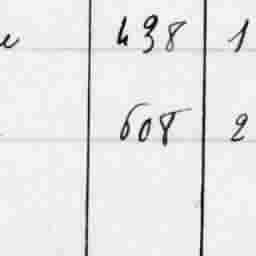 438 1
608 2